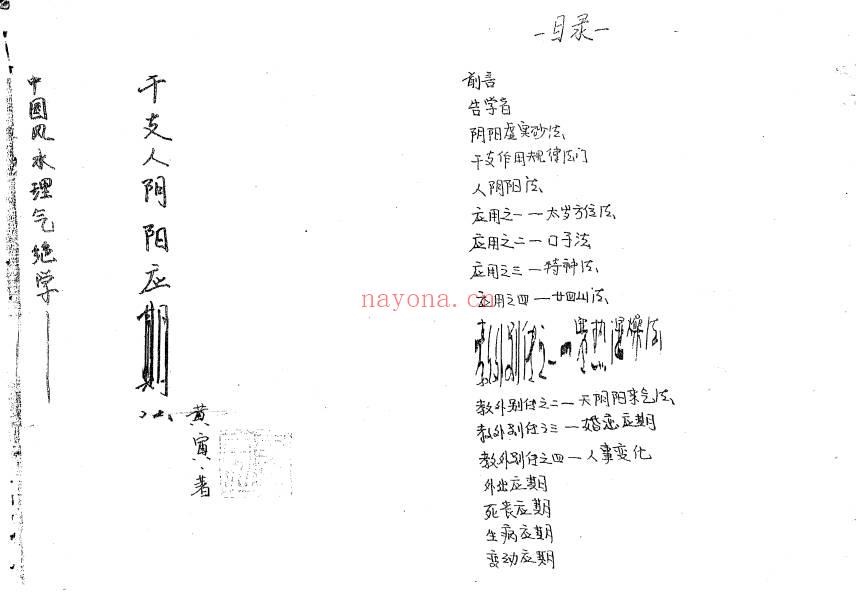 中国风水理气绝学
干支人阴阳应期
法
黄寅·著
-目录-
前言
告学者
阴阳虚实砂法
干支作用规律法门
人阴阳法
应用之一—太岁方位法
应用之二—口子法
应用之三—特神法
应用之四—廿四山法
教外别传之一—寒热湿燥法
教外别传之二—天阴阳来气法
教外别传之三—婚恋应期
教外别传之四—人事变化
外出应期
死丧应期
生病应期
变动应期
nayona.cn